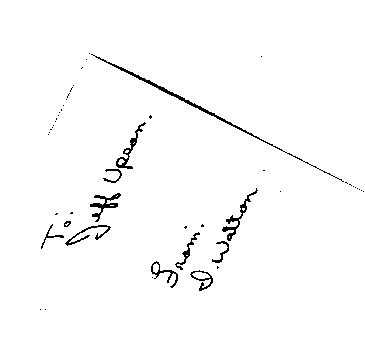 To:
Jeff Upson.
From:
D. Walton